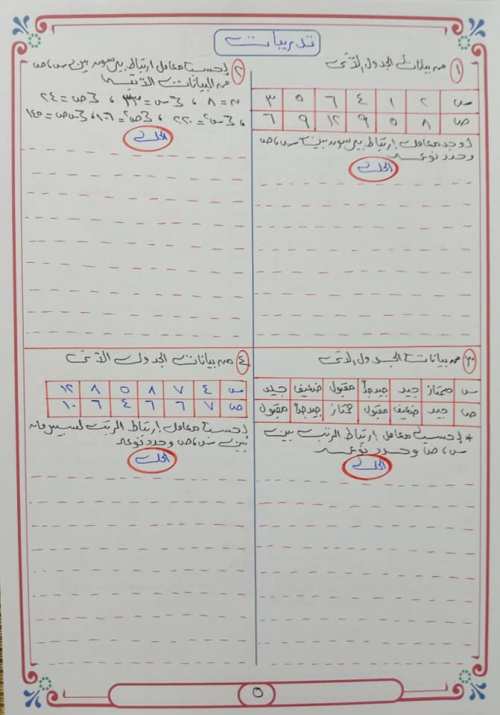 تدريبات
١ من بيانات الجدول الآتى
س ٢ ١ ٤ ٦ ٥ ٣
ص ٨ ٥ ٩ ١٢ ٩ ٦
أوجد معامل ارتباط بيرسون بين س، ص
وحدد نوعه
الحل
٢ احسب معامل ارتباط بيرسون بين س، ص
من البيانات الآتية
ن = ٨ ، مجـ س = ٣٠ ، مجـ ص = ٢٤
، مجـ س٢ = ٢٢٠ ، مجـ ص٢ = ١٦٠ ، مجـ س ص = ١٤٥
الحل
٣ من بيانات الجدول الآتى
س ممتاز جيد جيدجداً مقبول ضعيف جيد
ص جيد ضعيف مقبول ممتاز جيدجداً مقبول
* احسب معامل ارتباط الرتب بين
س، ص وحدد نوعه
الحل
٤ من بيانات الجدول الآتى
س ٤ ٧ ٨ ٥ ٨ ١٢
ص ٧ ٦ ٦ ٤ ٦ ١٠
احسب معامل ارتباط الرتب لسبيرمان
بين س، ص وحدد نوعه
الحل
٥